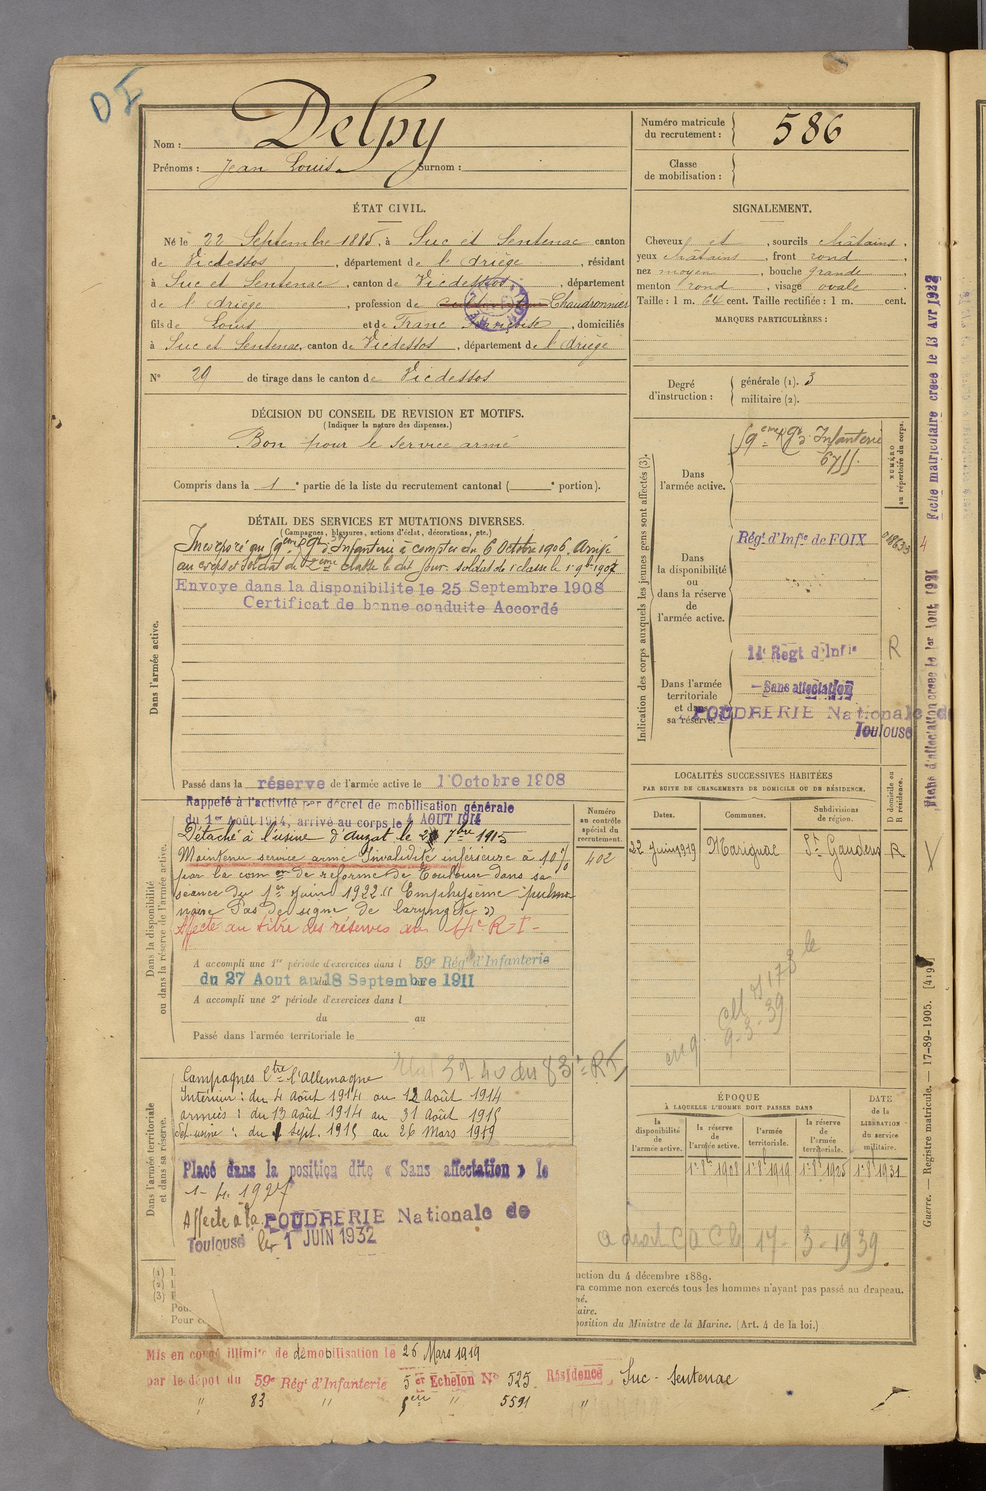 DI
Nom : Delpy
Prénoms : Jean Louis Surnom :
Numéro matricule du recrutement : 586
Classe de mobilisation :
ÉTAT CIVIL.
Né le 22 Septembre 1885, à Suc et Sentenac canton
de Vicdessos, département de l'Ariège, résidant
à Suc et Sentenac, canton de Vicdessos, département
de l'Ariège, profession de Chaudronnier
fils de Louis et de Franc, domiciliés
à Suc et Sentenac, canton de Vicdessos, département de l'Ariège
N° 29 de tirage dans le canton de Vicdessos
SIGNALEMENT.
Cheveux et, sourcils châtains,
yeux châtains, front rond,
nez moyen, bouche grande,
menton rond, visage ovale.
Taille : 1 m. 64 cent. Taille rectifiée : 1 m. cent.
MARQUES PARTICULIÈRES :
Degré d'instruction :
générale (1). 3
militaire (2).
DÉCISION DU CONSEIL DE REVISION ET MOTIFS.
(Indiquer la nature des dispenses.)
Bon pour le service armé
Compris dans la 1e partie de la liste du recrutement cantonal (e portion).
DÉTAIL DES SERVICES ET MUTATIONS DIVERSES.
(Campagnes, blessures, actions d'éclat, décorations, etc.)
Incorporé au 59eme Rgt d'Infanterie à compter du 6 Octobre 1906. Arrivé
au corps et soldat de 2eme classe le dit jour. soldat de 1 classe le 1 9b 1907
Envoye dans la disponibilite le 25 Septembre 1908
Certificat de bonne conduite Accordé
Dans l'armée active.
Passé dans la réserve de l'armée active le 1 Octobre 1908
Indication des corps auxquels les jeunes gens sont affectés (3).
Dans l'armée active.
59eme Rgt d'Infanterie
NUMÉRO au répertoire du corps.
Dans la disponibilité ou dans la réserve de l'armée active.
Régt d'Infie de FOIX
Dans l'armée territoriale et dans sa réserve.
14e Regt d'Infie
R
Sans affectation
POUDRERIE Nationale de
Toulouse
Fiche matriculaire créée le 13 Avr 1932
Fiche d'affectation créée le 1er Août 1931
Dans la disponibilité ou dans la réserve de l'armée active.
Rappelé à l'activité par décret de mobilisation générale
du 1er août 1914, arrivé au corps le 4 AOUT 1914
Détaché à l'usine d'Auzat le 7bre 1915
Maintenu service armé Invalidité inférieure à 10 %
par la com on de réforme de Toulouse dans sa
séance du 1er Juin 1922 "Emphysème pulmo
naire Pas de signe de laryngite"
Affecté au titre des réserves au 14e R-I-
A accompli une 1re période d'exercices dans l 59e Régt d'Infanterie
du 27 Aout au 18 Septembre 1911
A accompli une 2e période d'exercices dans l
du au
Passé dans l'armée territoriale le
Numéro au contrôle spécial du recrutement.
402
LOCALITÉS SUCCESSIVES HABITÉES
PAR SUITE DE CHANGEMENTS DE DOMICILE OU DE RÉSIDENCE.
Dates. Communes. Subdivisions de région. D domicile ou R résidence.
22 Juin 1919 Marignac St Gaudens R
9-3-39
Dans l'armée territoriale et dans sa réserve.
Campagnes Ctre l'Allemagne
Intérieur : du 4 août 1914 au 12 Août 1914
armées : du 13 août 1914 au 31 Août 1915
du 1 Sept. 1915 au 26 Mars 1919
Placé dans la position dite « Sans affectation » le
Affecté à la POUDRERIE Nationale de
Toulouse le 1 JUIN 1932
ÉPOQUE
À LAQUELLE L'HOMME DOIT PASSER DANS
la disponibilité de l'armée active.
la réserve de l'armée active.
l'armée territoriale.
la réserve de l'armée territoriale.
DATE de la LIBÉRATION du service militaire.
1 8b 1908 1 8b 1919 1 8b 1925 1 8b 1931
17-3-1939.
(1) I
(2) I
(3) I
Pou
Pour c
uction du 4 décembre 1889.
ra comme non exercés tous les hommes n'ayant pas passé au drapeau.
né.
aire.
position du Ministre de la Marine. (Art. 4 de la loi.)
Guerre. — Registre matricule. — 17-89-1905. [4192]
Mis en congé illimité de démobilisation le 26 Mars 1919
par le dépôt du 59e Régt d'Infanterie 5 er Echelon N° 525 Résidence Suc-Sentenac
" 83 " 5eme " 5591 "